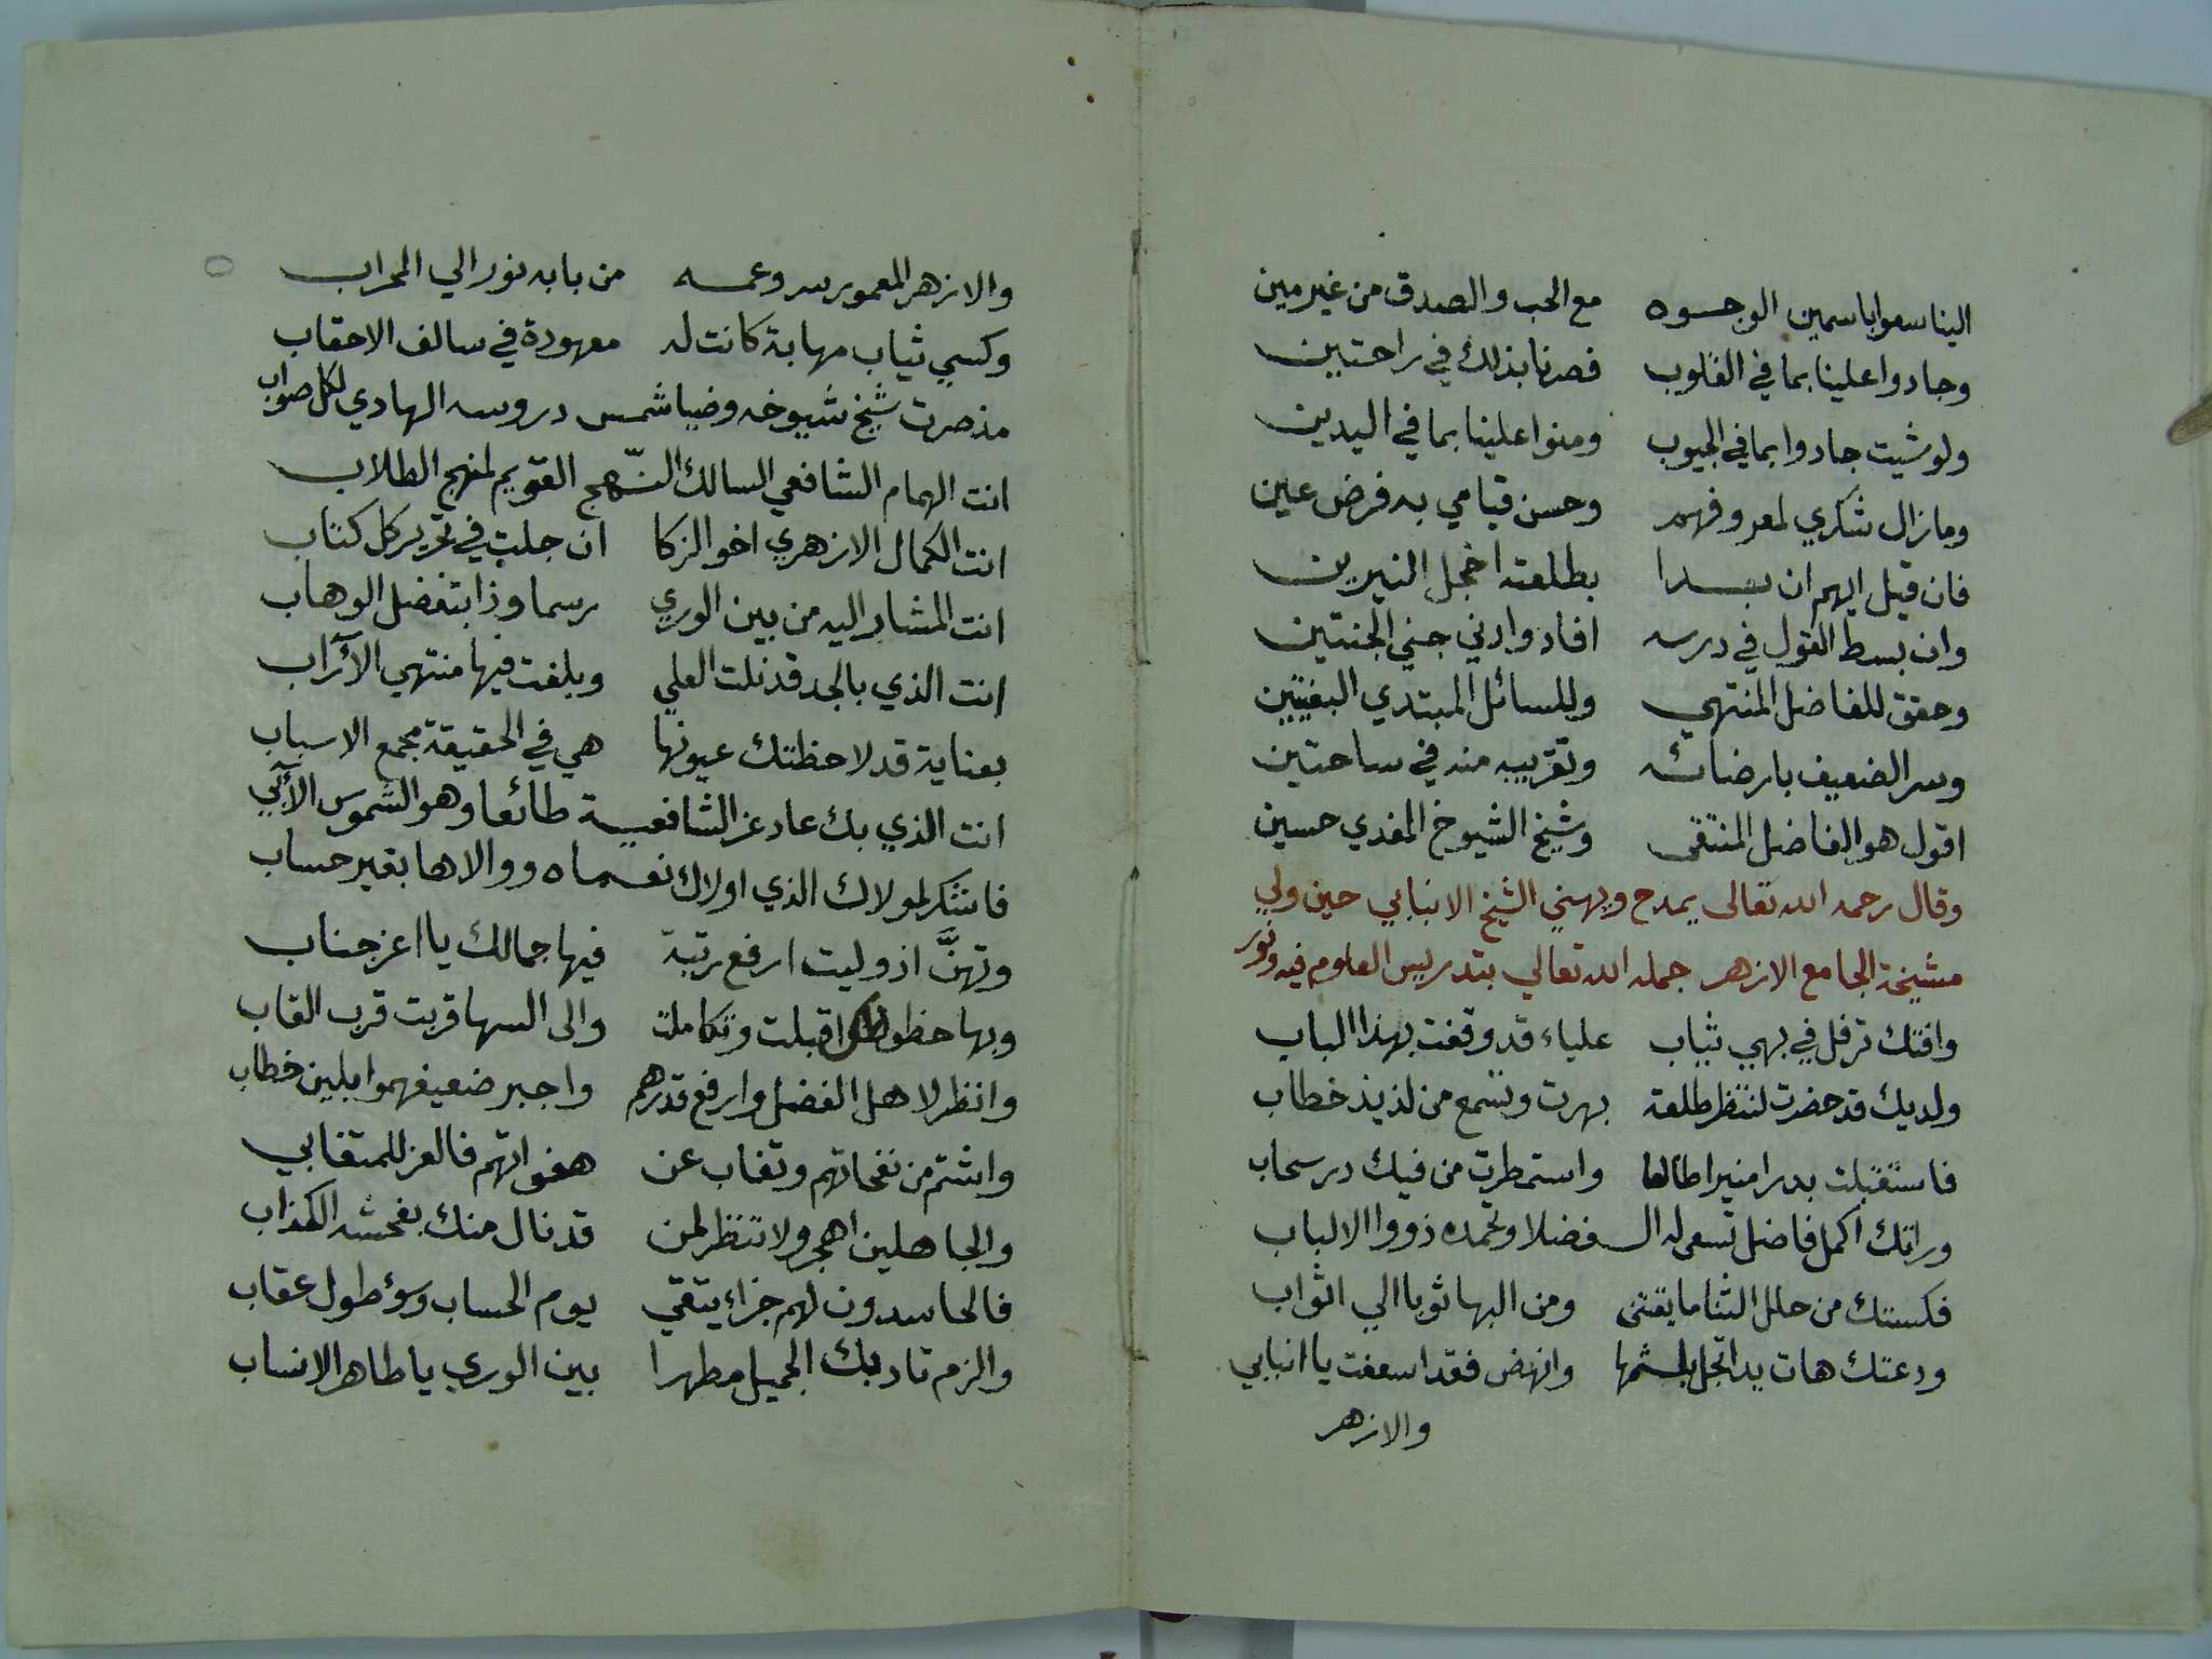 الينا سعوا باسمين الوجوه مع الحب والصدق من غير مين
وجادوا علينا بما في القلوب فصرنا بذلك في راحتين
ولو شيت جادوا بما في الجيوب ومنوا علينا بما في اليدين
وما زال شكري لمعروفهم وحسن قيامي به فرض عين
فان قيل ايهم ان بدا بطلعته اخجل النيرين
وان بسط القول في درسه افاد وادني جني الجنتين
وحقق للفاضل المنتهي وللسائل المبتدي البغيتين
وسر الضعيف بارضائه وتقريبه منه في ساحتين
اقول هو الفاضل المنتقى وشيخ الشيوخ المفدي حسين
وقال رحمه الله تعالى يمدح ويهني الشيخ الانبابي حين ولي
مشيخة الجامع الازهر جمله الله تعالي بتدريس العلوم فيه ونور
وافتك ترفل في بهي ثياب علياء قد وقفت بهذا الباب
ولديك قد حضرت لتنظر طلعة بهرت وتسمع من لذيذ خطاب
فاستقبلت بدرا منيرا طالعا واستمطرت من فيك در سحاب
وراتك اكمل فاضل تسعى له الفضلا وتحمده ذووا الالباب
فكستك من حلل الثنا ما يقتنى ومن البها ثوبا الي اثواب
ودعتك هات يدا تجل بلثمها وانهض فقد اسعفت يا انبابي
والازهر
والازهر المعمور سر وعمه من بابه نور الي المحراب
وكسي ثياب مهابة كانت له معهودة في سالف الاحقاب
مذ صرت شيخ شيوخه وضيا شمس دروسه الهادي لكل صواب
انت الهمام الشافعي السالك النّهج القويم لمنهج الطلاب
انت الكمال الازهري اخو الزكا ان جلت في تحرير كل كتاب
انت المشار اليه من بين الوري رسما وذا بتفضل الوهاب
انت الذي بالجد قد نلت العلي وبلغت فيها منتهي الآراب
بعناية قد لاحظتك عيونها هي في الحقيقة مجمع الاسباب
انت الذي بك عاد عز الشافعية طائعا وهو الشموس الآبي
فاشكر لمولاك الذي اولاك نعماه ووالاها بغير حساب
وتهنَّ اذ وليت ارفع رتبة فيها جمالك يا اعز جناب
وبها حظوظك اقبلت وتكاملت والى السها قربت قرب القاب
وانظر لاهل الفضل وارفع قدرهم واجبر ضعيفهموا بلين خطاب
واشتم من نفحاتهم وتغاب عن هفواتهم فالعز للمتغابي
والجاهلين اهجر ولا تنظر لمن قد نال منك بفحشه الكذاب
فالحاسدون لهم جزاء يتقي يوم الحساب وسؤ طول عقاب
والزم تادبك الجميل مطهرا بين الوري يا طاهر الانساب